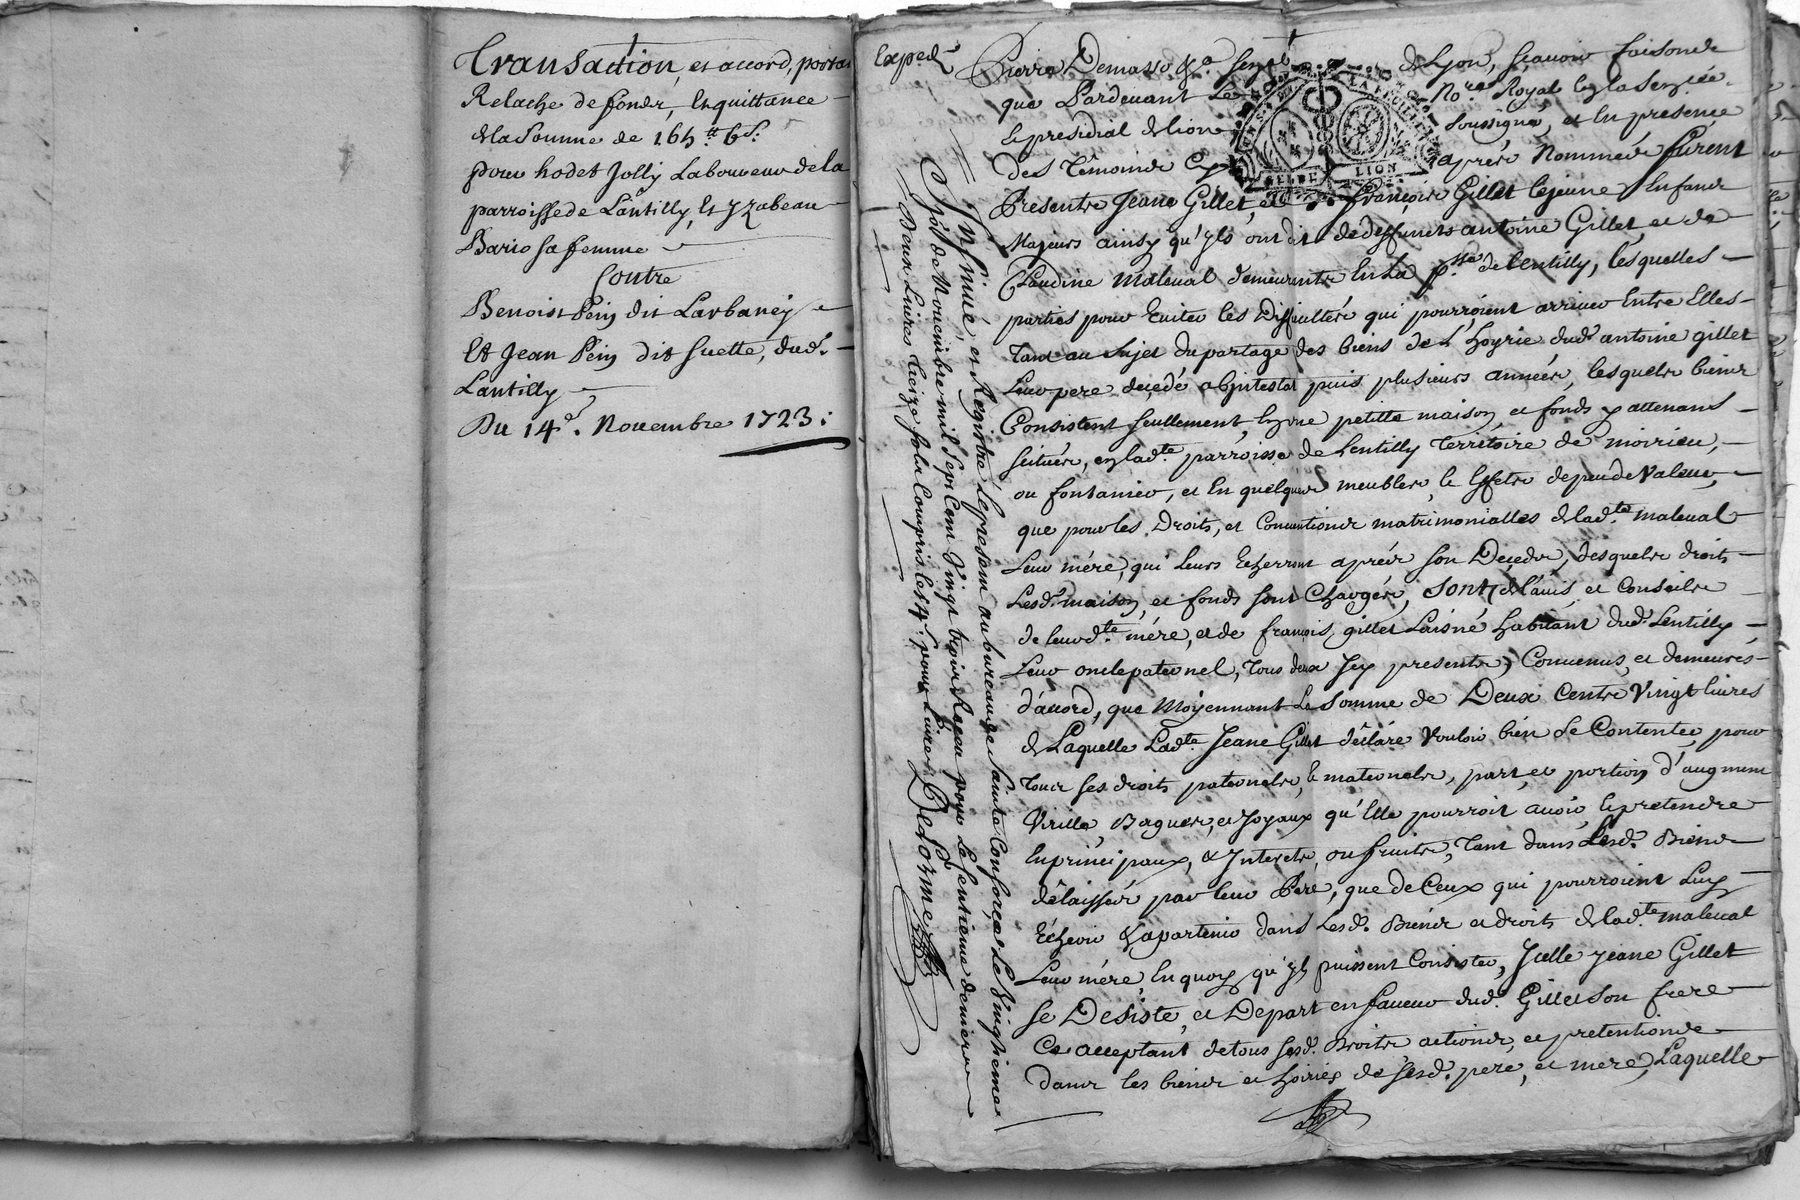 Transaction, et accord, porta
Relache de fonds, Et quittance
de la Somme de 165tt 6s.
pour hodet Jolly Laboureur de la
parroisse de Lantilly, Et Yzabeau
Bario sa femme
Contre
Benoist Pein dit Larbaney
Et Jean Pein dit Suette, dud.
Lantilly
Du 14e. Novembre 1723.
Exped.
Pierre Demasso &a Seneal de Lyon, scavoir faisons
que Pardevant Le Nore Royal en la Senée.
le presidial de lion Soussigné, et En presence
des Témoins Cy après Nommés furent
Presents Jeane Gillet, et françois Gillet lejeune Enfans
Majeurs ainsy qu'Ils ont dit de deffunts antoine Gillet, et de
Claudine maleval demeurants En La psse de lentilly, lesquelles
parties pour Eviter les Difficultés qui pourroient arriver Entre Elles
Tant au Sujet du partage des biens de L'hoyrie dud. antoine gillet
Leur pere decedé abintestat puis plusieurs années, lesquels biens
Consistent seullement, En une petitte maison, et fonds y attenans
scitués, en lad.te parroisse de Lentilly Territoire de moirieu,
ou fontanier, et En quelques meubles, & Effets de peu de Valeur,
que pour les Droits, et Conventions matrimonialles de lad.te maleval
Leur mére, qui leurs Echerront après son Decedz, desquels droits
Lesd. maison, et fonds sont Chargés, Sont, de l'avis, et Conseils
de leurd.te mére, et de françois gillet Laisné habitant dud. Lentilly
Leur oncle paternel, tous deux Icy presents, Convenus, et demeurés
d'accord, que Moyennant La Somme de Deux Cents Vingt livres
de Laquelle Lad.te Jeane Gillet déclare Vouloir bien se Contenter, pour
Tous ses droits paternels, & maternels, part, et portion d'augment
Virille, Bagues, et Joyaux qu'Elle pourroit avoir, & pretendre
En principaux, & Interets, ou fruits, Tant dans Lesd. Biens
délaissés par leur Pere, que de Ceux qui pourroient Luy
Échevir & apartenir dans Lesd. Biens et droits de lad.te maleval
Leur mére, En quoy qu'Ils puissent Consister, Icelle Jeane Gillet
se Desiste, et Depart en faveur dud. Gillet son frere
Ce acceptant de tous sesd. Droits actions, et pretentions
dans les biens et hoiries de sesd. pere, et mere, Laquelle
Insinué, et Registré le present au bureau de Sainte Consorce Le Vingtieme
Jo.r de Novembre mil Sept Cent Vingt trois Receu pour Le Centieme denier
Deux Livres treize sols Compris les 4s. pour Livres Delorme
GEN. DE LION